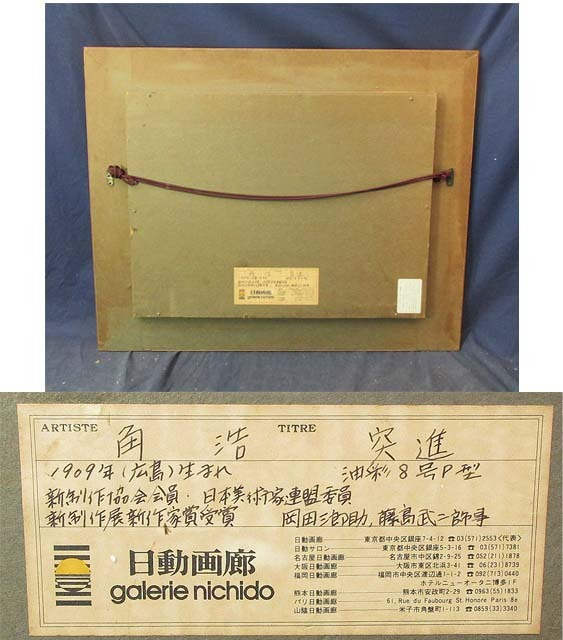 ARTISTE 角 浩 TITRE 突進
1909年(広島)生まれ 油彩8号P型
新制作協会会員・日本美術家連盟委員
新制作展新作家賞受賞 岡田三郎助,藤島武二師事
日動画廊
galerie nichido
日動画廊 東京都中央区銀座7-4-12 ☎03(571)2553<代表>
日動サロン 東京都中央区銀座5-3-16 ☎03(571)7381
名古屋日動画廊 名古屋市中区錦2-9-25 ☎052(211)1878
大阪日動画廊 大阪市東区北浜3-41 ☎06(231)8739
福岡日動画廊 福岡市中央区渡辺通1-1-2 ☎092(713)0440
ホテルニューオータニ博多1F
熊本日動画廊 熊本市安政町2-29 ☎0963(55)1833
パリ日動画廊 61, Rue du Faubourg St. Honore Paris 8e
山陰日動画廊 米子市角盤町1-113 ☎0859(33)3340